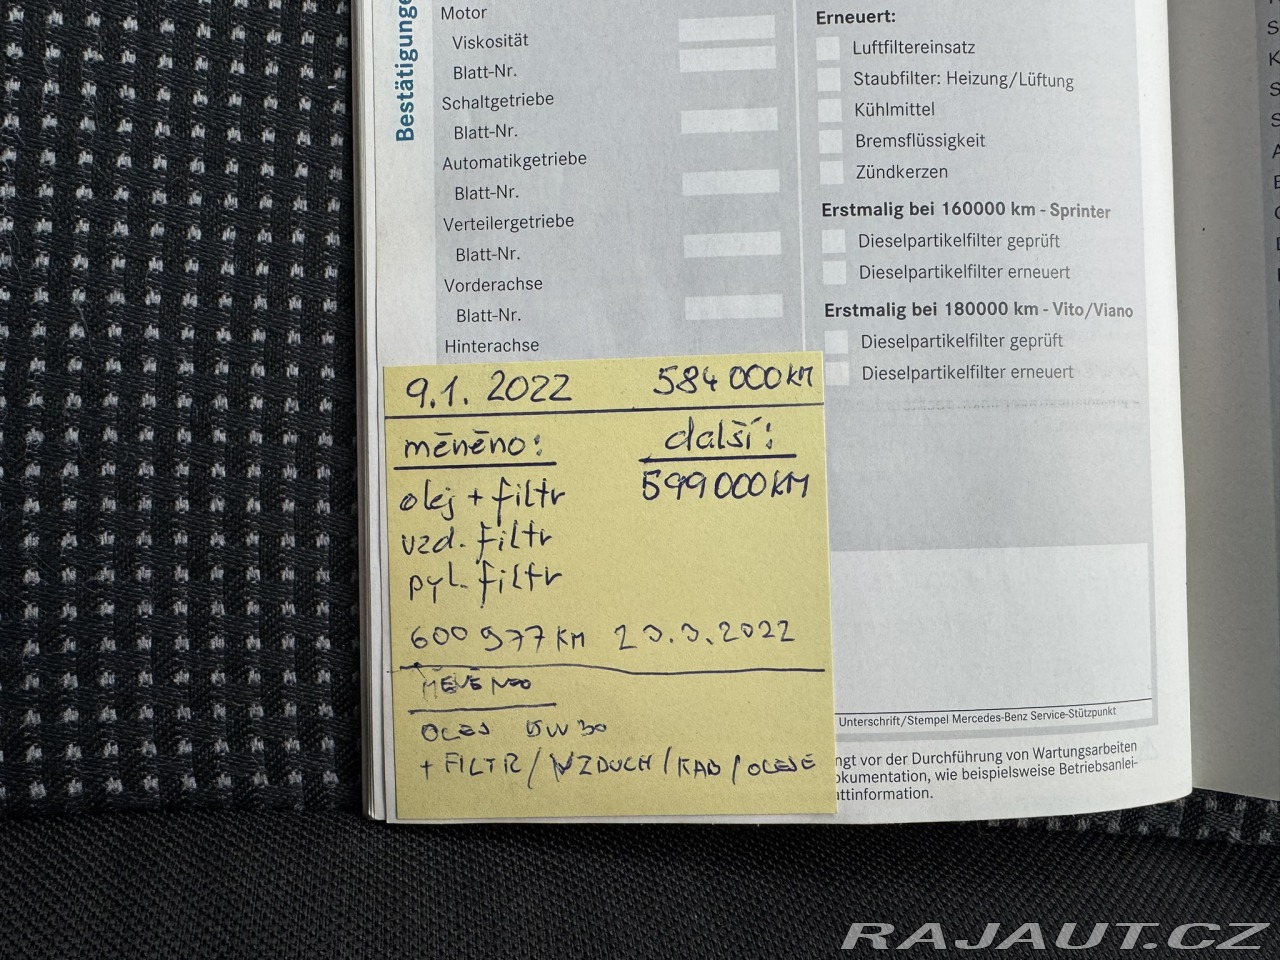 Bestätigunge
Motor
Viskosität
Blatt-Nr.
Schaltgetriebe
Blatt-Nr.
Automatikgetriebe
Blatt-Nr.
Verteilergetriebe
Blatt-Nr.
Vorderachse
Blatt-Nr.
Hinterachse
Erneuert:
Luftfiltereinsatz
Staubfilter: Heizung/Lüftung
Kühlmittel
Bremsflüssigkeit
Zündkerzen
Erstmalig bei 160000 km - Sprinter
Dieselpartikelfilter geprüft
Dieselpartikelfilter erneuert
Erstmalig bei 180000 km - Vito/Viano
Dieselpartikelfilter geprüft
Dieselpartikelfilter erneuert
9.1. 2022 584 000 KM
měněno: další:
olej + filtr 599 000 KM
vzd. filtr
pyl. filtr
600 977 KM 23.3.2022
MĚNĚNO
OLEJ 5W30
+ FILTR / VZDUCH / KAB / OLEJE
Unterschrift/Stempel Mercedes-Benz Service-Stützpunkt
ngt vor der Durchführung von Wartungsarbeiten
okumentation, wie beispielsweise Betriebsanlei-
attinformation.
RAJAUT.CZ